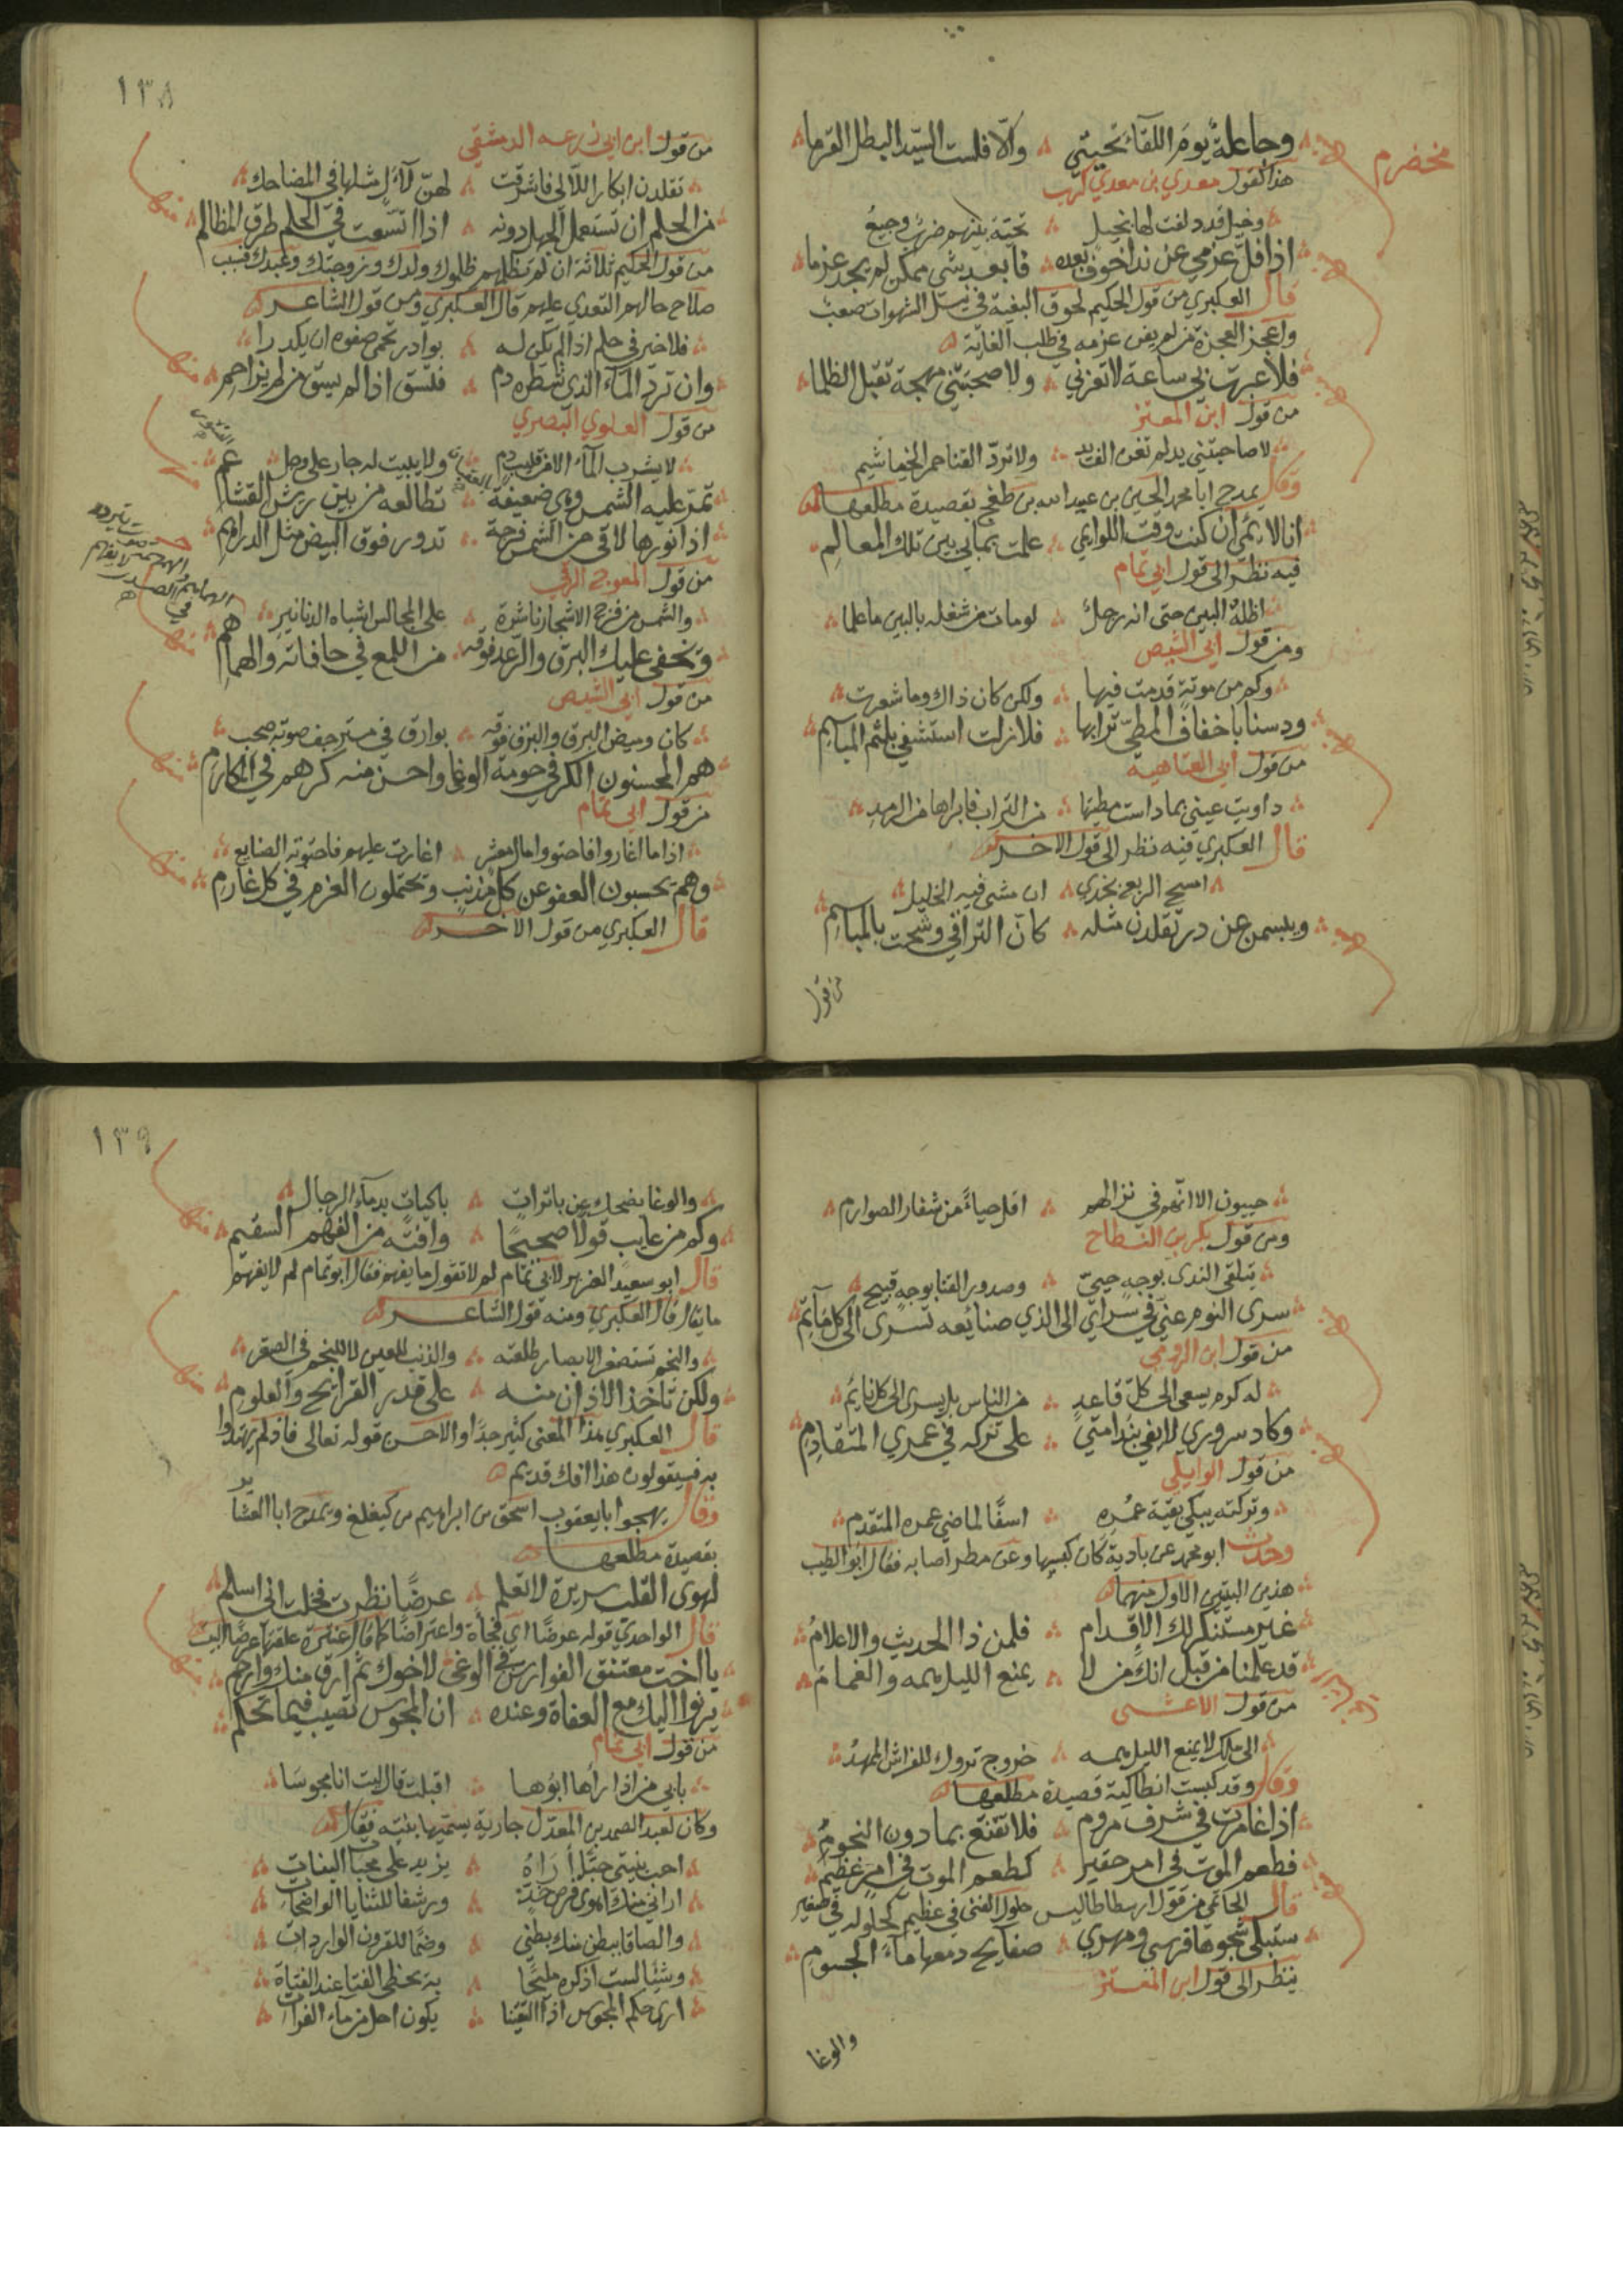 وجاعله يوم اللقاء تحيتي ؞ والّا فلست السيّد البطل القرما
مخضرم
هذا كقول معدي بن معدي كرب
وخيل قد دلفت لها بخيل ؞ تحية بينهم ضرب وجيع
اذا قلّ عزمي عن ندا خوف بعده ؞ فابعد شي ممكن لم يجد عزما
قال العكبري من قول الحكيم لحوق البغية في نيل الشهوات صعب
واعجز العجزة من لم يفن عزمه في طلب الغاية
فلا عبرت بي ساعة لا تعزني ؞ ولا صحبتني مهجة تقبل الظلما
من قول ابن المعتز
لا صاحبتني يد لم تغن الف يد ؞ ولا تردّ القنا حمر الخياشيم
وقال يمدح ابا محمد الحسين بن عبيد الله بن طغج بقصيدة مطلعها
انا لائمي ان كنت وقت اللوايم ؞ علمت بما بي بين تلك المعالم
فيه نظر الى قول ابي تمام
اظله البين حتى انه رجل ؞ لو مات من شغله بالبين ما علما
ومن قول ابي الشيص
وكم من موتة قد مت فيها ؞ ولكن كان ذاك وما شعرت
ودسنا باخفاف المطيّ ترابها ؞ فلا زلت استشفي بلثم المباسم
من قول ابي العتاهيه
داويت عيني بما داست مطيتها ؞ من التراب فابراها من الرمد
قال العكبري فيه نظر الى قول الاخر
امسح الربع بخدي ؞ ان مشى فيه الخليل
ويبسمن عن درّ تقلدن مثله ؞ كانّ التراقي وشحت بالمباسم
من قول
١٣٨
من قول ابن ابي زرعه الدمشقي
تقلدن ابكار اللآلي فاشرقت ؞ لهنّ لآل مثلها في المضاحك
من الحلم ان تستعمل الجهل دونه ؞ اذا اتسعت في الحلم طرق المظالم
من قول الحكيم ثلاثة ان لم تظلمهم ظلموك ولدك وزوجتك وعبدك فسبب
صلاح حالهم التعدي عليهم قال العكبري ومن قول الشاعر
فلا خير في حلم اذا لم يكن له ؞ بوادر تحمي صفوه ان يكدرا
وان ترد المآء الذي شطره دم ؞ فتسقى اذا لم يسق من لم يزاحم
من قول العلوي البصري
لا يشرب المآء الا من قليب دم ؞ ولا يبيت له جار على وجل
تمرّ عليه الشمس وهي ضعيفة ؞ تطالعه من بين ريش القشاعم
اذا نورها لاقى من الشمس فرجة ؞ تدور فوق البيض مثل الدراهم
من قول المعوج الرقي
والشمس من فرج الاشجار ناشرة ؞ على المجالس اشباه الدنانير
ويخفي عليك البرق والرعد فوقه ؞ من اللمع في حافاته والهماهم
من قول ابي الشيص
كان وميض البرق والبرق فوقه ؞ بوارق في مسترجف صوته صحب
هم المحسنون الكر في حومة الوغا ؞ واحسن منه كرهم في المكارم
من قول ابي تمام
اذا ما اغاروا فاحتووا مال معشر ؞ اغارت عليهم فاحتوته الصنايع
وهم يحسبون العفو عن كل مذنب ؞ ويحتملون الغرم في كل غارم
قال العكبري من قول الاخر
حييون الا انهم في نزالهم ؞ اقل حياءً من شفار الصوارم
ومن قول بكر بن النطاح
يتلقى الندى بوجه حييّ ؞ وصدور القنا بوجه قبيح
سرى النوم عني في سراي الى الذي ؞ صنائعه تسرى الى كل نايم
من قول ابن الرومي
له كرم يسعى الى كلّ قاعد ؞ من الناس بل يسرى الى كل نايم
وكاد سروري لا يفي بندامتي ؞ على تركه في عمري المتقادم
من قول الوايلي
وتركته يبكي بقية عمره ؞ اسفًا لماضي عمره المتقدم
وحدث ابو محمد عن بادية كان كبسها وعن مطر اصابه فقال ابو الطيب
هذين البيتين الاول منهما
غير مستنكر لك الاقدام ؞ فلمن ذا الحديث والاعلام
قد علمنا من قبل انك من لا ؞ يمنع الليل همه والغمام
من قول الاعشى
الى ملك لا يمنع الليل همه ؞ خروج تروك للفراش الممهد
وقال وقد كبست انطاكية قصيدة مطلعها
اذا غامرت في شرف مروم ؞ فلا تقنع بما دون النجوم
فطعم الموت في امر حقير ؞ كطعم الموت في امر عظيم
قال الحاتمي من قول ارسطاطاليس حلول الفنى في عظيم كحلوله في صغير
ستبكي شجوها فرسى ومهري ؞ صفايح دمعها مآء الجسوم
ينظر الى قول ابن المعتز
والوغا
١٣٩
والوغا يضحك عن باترات ؞ باكيات بدمآء الرجال
وكم من عايب قولًا صحيحًا ؞ وافته من الفهم السقيم
قال ابو سعيد الضرير لابي تمام لم لا تقول ما يفهم فقال ابو تمام لم لا يفهم
ما يقال قال العكبري ومنه قول الشاعر
والنجم تستصغر الابصار طلعته ؞ والذنب للعين لا للنجم في الصغر
ولكن تاخذ الاذان منه ؞ على قدر القرايح والعلوم
قال العكبري هذا المعنى كثير جدًا والاحسن قوله تعالى فاذ لم يهتدوا
به فسيقولون هذا افك قديم
وقال يهجوا ابا يعقوب اسحق بن ابراهيم بن كيغلغ ويمدح ابا العشاير
بقصيدة مطلعها
لهوى القلب سريرة لا تعلم ؞ عرضًا نظرت فخلت اني اسلم
قال الواحدي قوله عرضًا اي فجأة واعتراضًا كما قال عنترة علقتها عرضًا البيت
يا اخت معتنق الفوارس في الوغى ؞ لاخوك ثم ارق منك وارحم
يرنوا اليك مع العفاة وعنده ؞ ان المجوس تصيب فيما تحكم
من قول ابي تمام
بابي من اذا رأها ابوها ؞ اقبلت قال ليت انا مجوسا
وكان لعبد الصمد بن المعدّل جارية يسميها بنيته فقال
احب بنيتي حبًّا أراهُ ؞ يزيد على محبات البنات
اراني منك اهوى قرص خدّ ؞ ورشفا للثنايا الواضحات
والصاقا ببطن منك بطني ؞ وضمًا للقرون الواردات
وشيًا لست اذكره مليحًا ؞ به يحظى الفتا عند الفتاة
ارى حكم المجوس اذا التقينا ؞ يكون احل من مآء الفرات